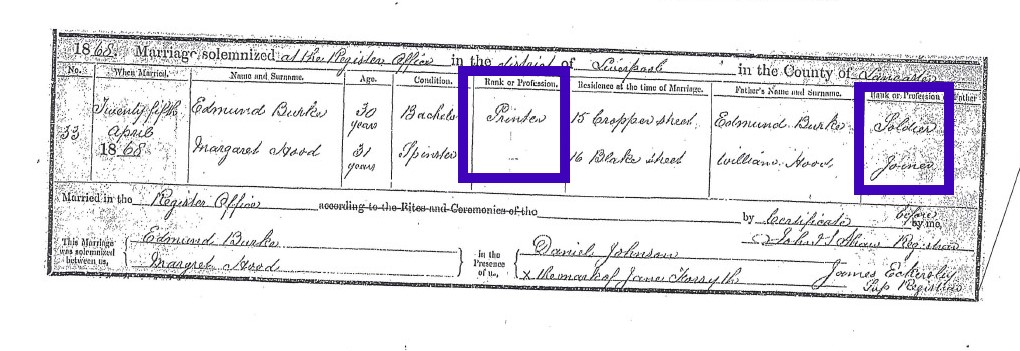 1868. Marriage solemnized at the Register Office in the district of Liverpool in the County of Lancaster
No. When Married. Name and Surname. Age. Condition. Rank or Profession. Residence at the time of Marriage. Father's Name and Surname. Rank or Profession of Father
33 Twenty fifth April 1868 Edmund Burke 30 years Bachelor Printer 15 Cropper street Edmund Burke Soldier
Margaret Hood 31 years Spinster — 16 Blake street William Hood Joiner
Married in the Register Office according to the Rites and Ceremonies of the by Certificate before by me,
This Marriage was solemnized between us, Edmund Burke Margret Hood in the Presence of us, Daniel Johnson X the mark of Jane Forsyth John S Shaw Registrar
James Eckersley Sup Registrar